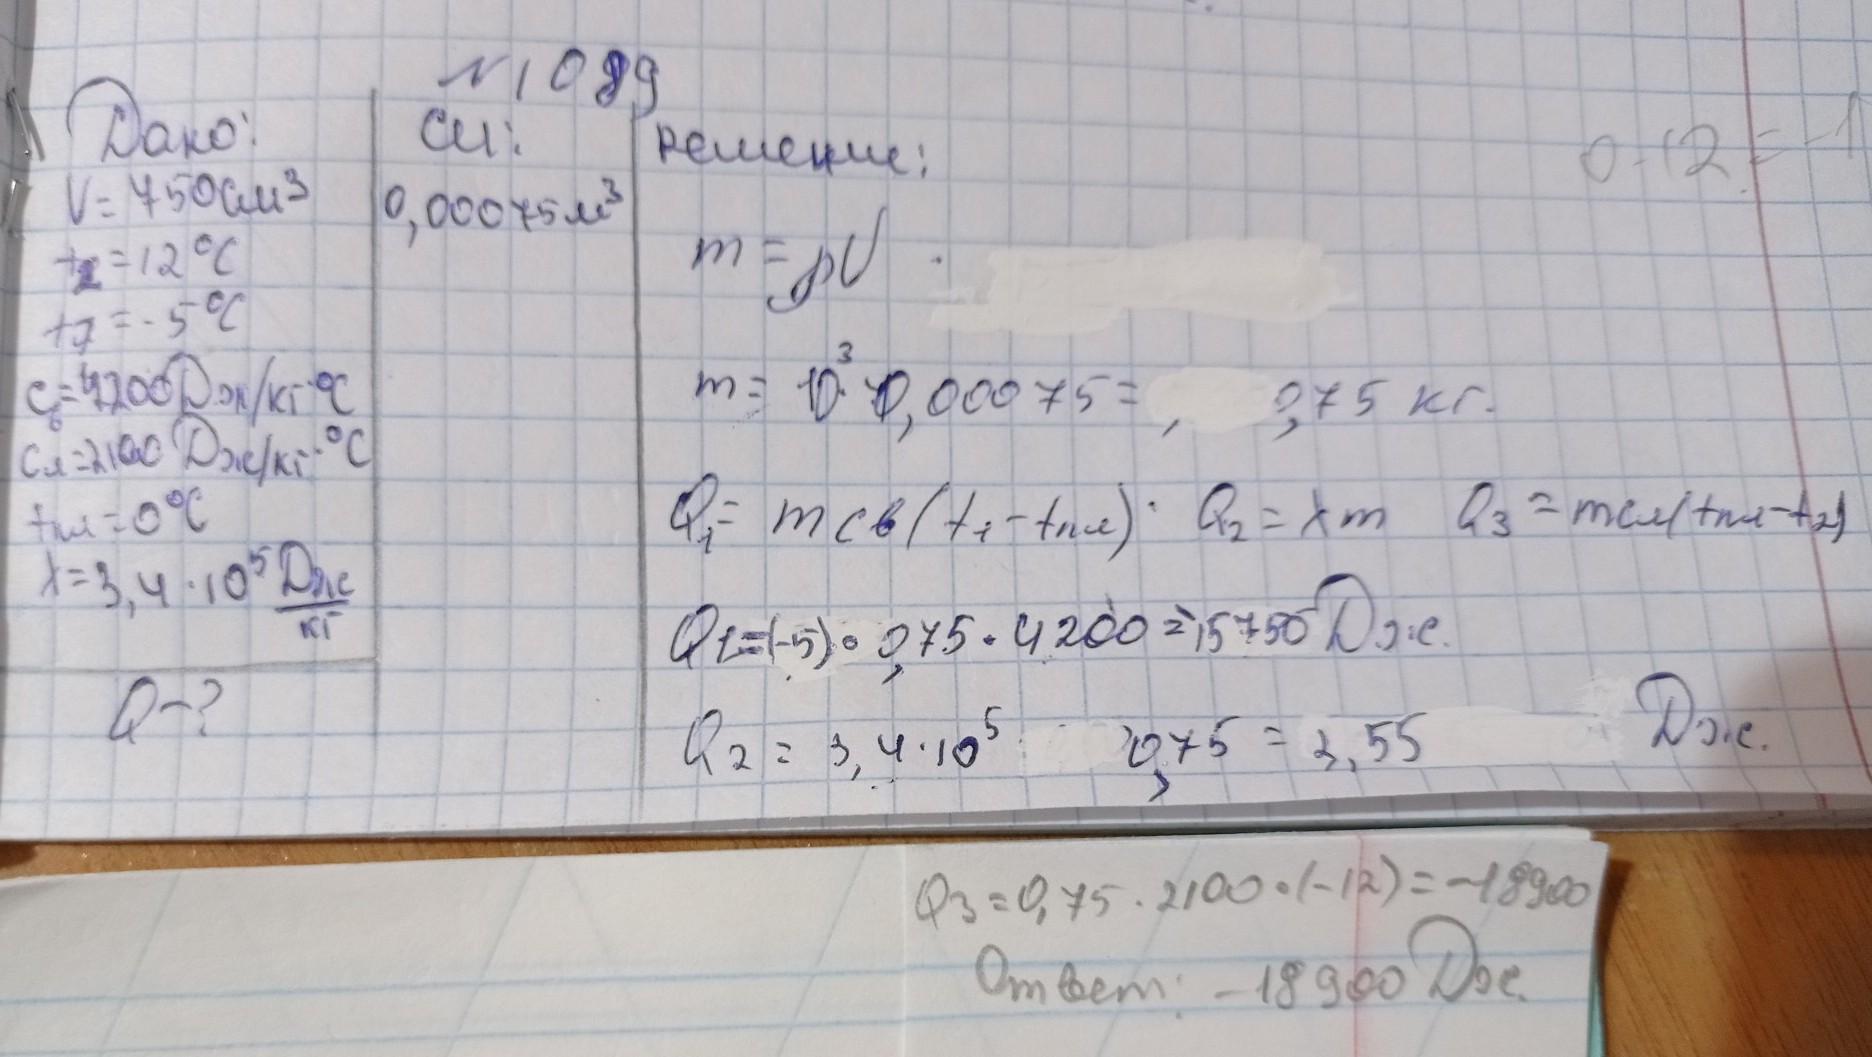 №1089
Дано:
V=750см³
t₂=12°C
t₁=-5°C
cв=4200Дж/кг·°C
cл=2100Дж/кг·°C
tпл=0°C
λ=3,4·10⁵ Дж/кг
Q-?
СИ:
0,00075м³
Решение:
0-12=-1
m=ρV
m=10³·0,00075=0,75 кг.
Q₁=mcв(t₁-tпл)· Q₂=λm Q₃=mcл(tпл-t₂)
Q₁=(-5)·0,75·4200=-15750 Дж.
Q₂=3,4·10⁵ 0,75=2,55 Дж.
Q₃=0,75·2100·(-12)=-18900
Ответ: -18900 Дж.